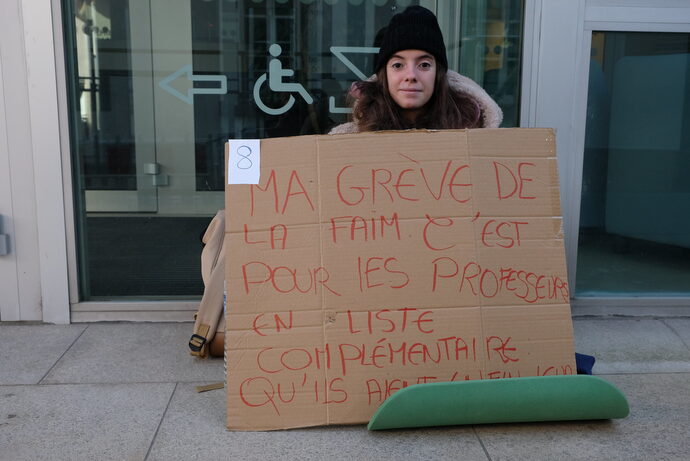 8
MA GRÈVE DE
LA FAIM. C'EST
POUR LES PROFESSEURS
EN LISTE
COMPLÉMENTAIRE.
QU'ILS AIENT